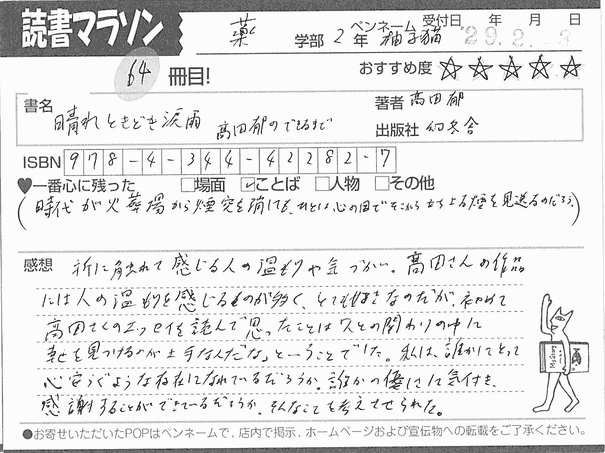 読書マラソン
薬 学部 2 年 ペンネーム 柚子猫 受付日 年 月 日
29.2.
64 冊目!
おすすめ度 ☆☆☆☆☆
書名 晴れときどき涙雨 髙田郁のできるまで
著者 髙田郁
出版社 幻冬舎
ISBN 978-4-344-42282-7
♥一番心に残った □場面 ☑ことば □人物 □その他
(時代が火葬場から煙突を消しても、ひとは心の目でそこから立ち上る煙を見送るのだろう)
感想 折に触れて感じる人の温もりや気づかい。髙田さんの作品
には人の温もりを感じるものが多く、とても好きなのだが、初めて
髙田さんのエッセイを読んで思ったことは人との関わりの中に
幸せを見つけるのが上手なんだな、ということでした。私は、誰かにとって
心安らぐような存在になれているだろうか、誰かの優しさに気付き、
感謝することができているだろうか、そんなことを考えさせられた。
●お寄せいただいたPOPはペンネームで、店内で掲示、ホームページおよび宣伝物への転載をご了承ください。